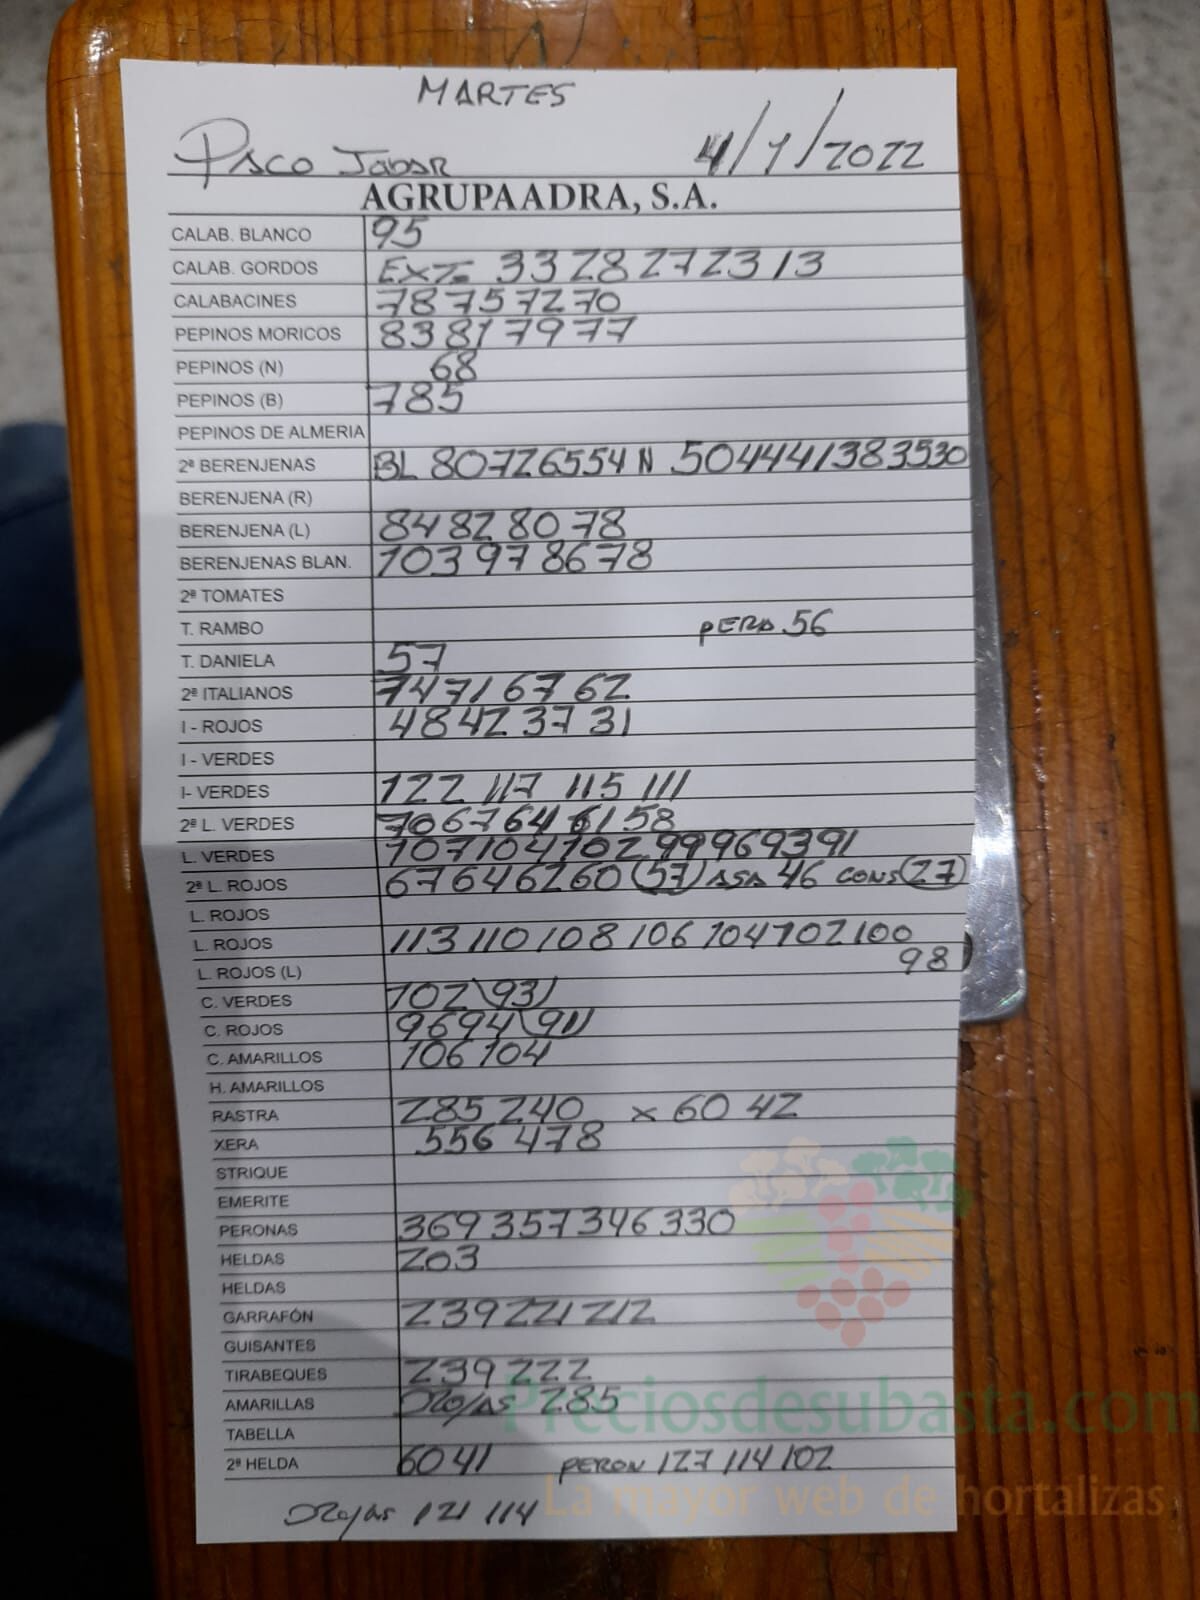 MARTES
Paco Jabar 4/1/2022
AGRUPAADRA, S.A.
CALAB. BLANCO 95
CALAB. GORDOS EXT. 33 28 27 23 13
CALABACINES 78 75 72 70
PEPINOS MORICOS 83 81 79 77
PEPINOS (N) 68
PEPINOS (B) 785
PEPINOS DE ALMERIA
2ª BERENJENAS BL 80 72 65 54 N 50 44 41 38 35 30
BERENJENA (R)
BERENJENA (L) 84 82 80 78
BERENJENAS BLAN. 103 97 86 78
2ª TOMATES
T. RAMBO PERA 56
T. DANIELA 57
2ª ITALIANOS 74 71 67 62
I - ROJOS 48 42 37 31
I - VERDES
I- VERDES 122 117 115 111
2ª L. VERDES 70 67 64 61 58
L. VERDES 107 104 102 99 96 93 91
2ª L. ROJOS 67 64 62 60 (57) ASA 46 CONS (27)
L. ROJOS
L. ROJOS 113 110 108 106 104 102 100
L. ROJOS (L) 98
C. VERDES 102 (93)
C. ROJOS 96 94 (91)
C. AMARILLOS 106 104
H. AMARILLOS
RASTRA 285 240 x 60 42
XERA 556 478
STRIQUE
EMERITE
PERONAS 369 357 346 330
HELDAS 203
HELDAS
GARRAFÓN 239 221 212
GUISANTES
TIRABEQUES 239 222
AMARILLAS ROJAS 285
TABELLA
2ª HELDA 60 41 PERON 127 114 102
ROJAS 121 114
Preciosdesubasta.com
La mayor web de hortalizas